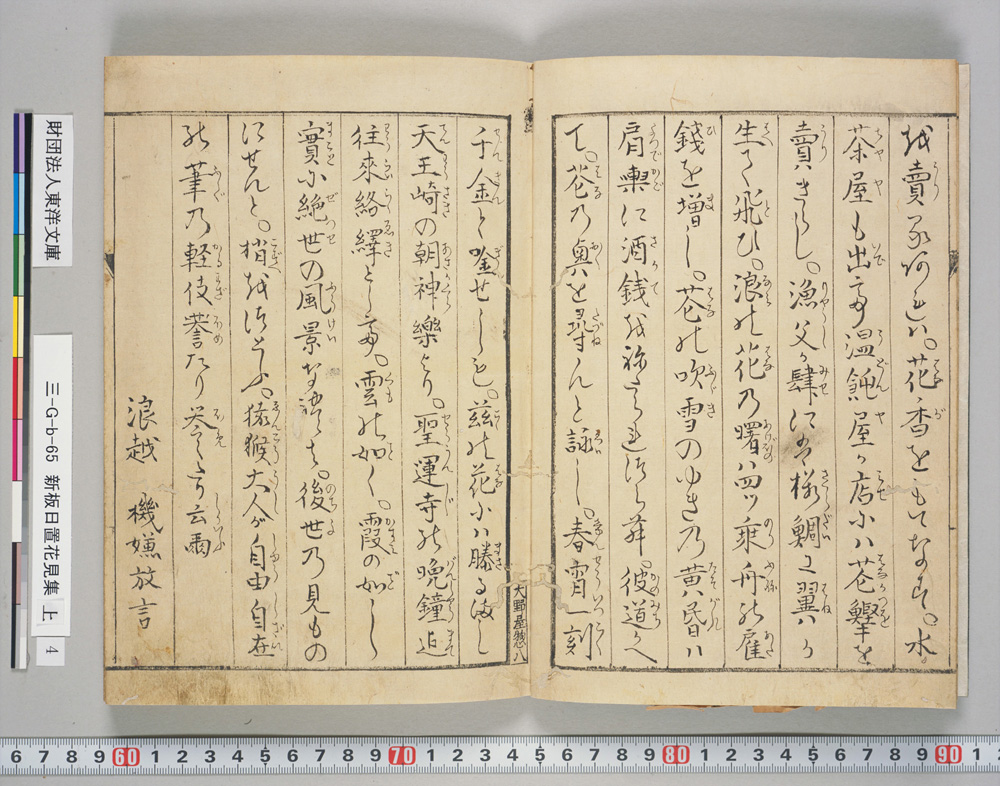 を賣る河の水。花香をもてなす。水
茶屋も出て温飩屋が店には花鰹を
賣きらし。漁父が肆には桜鯛に翼が
生て飛ひ。浪の花の曙は四ツ乗舟の雇
錢を増し。花の吹雪のゆきの黄昏は
肩輿に酒錢をねだられ
て。花の奥を尋んと詠し。春宵一刻
千金と唫せしも。茲の花には勝るまし
天王崎の朝神樂より。聖運寺の晩鐘迄
往來絡繹として。雲の如く。霞の如し
實に絶世の風景なれは。後世の見もの
にせんと。梢を
猿猴大人が自由自在
の筆の軽伎誉たり
云爾
浪越 機嫌放言
大野屋惣八
財団法人東洋文庫
三-G-b-65 新板日置花見集 上 4
6 7 8 9 60 1 2 3 4 5 6 7 8 9 70 1 2 3 4 5 6 7 8 9 80 1 2 3 4 5 6 7 8 9 90 1